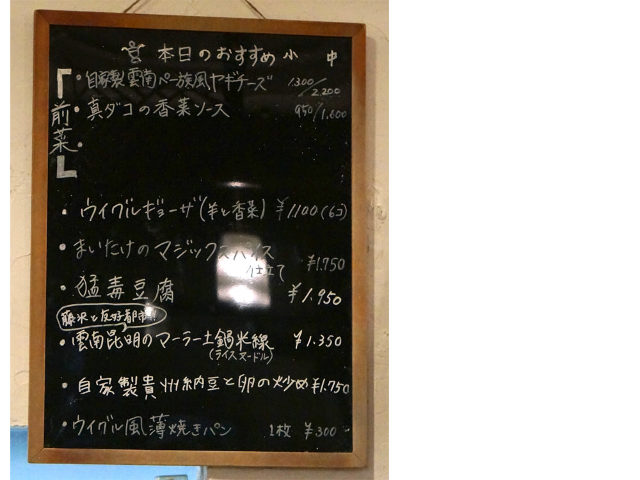 本日のおすすめ 小 中
「前菜」
・自家製雲南ペー族風ヤギチーズ 1.300/2.200
・真ダコの香菜ソース 950/1.600
・
・ウイグルギョーザ(羊と香菜) ¥1100(6コ)
・まいたけのマジックスパイス
仕立て ¥1.750
・猛毒豆腐 ¥1.950
藤沢と友好都市!!
・雲南昆明のマーラー土鍋米線 ¥1.350
(ライスヌードル)
・自家製貴州納豆と卵の炒め ¥1.750
・ウイグル風薄焼きパン 1枚 ¥300